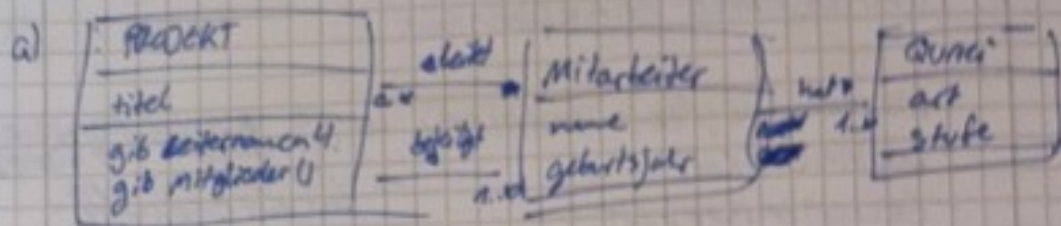 a)
PROJEKT
titel
gib Leiternamen()
gib Mitglieder()
1..*
Mitarbeiter
name
geburtsjahr
hat
1..*
art
stufe